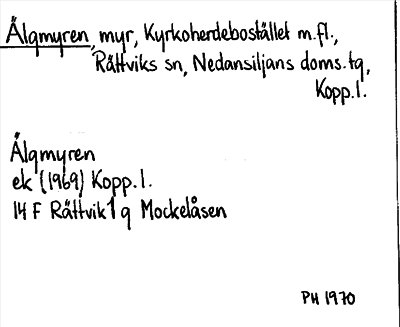 Älgmyren, myr, Kyrkoherdebostället m.fl.,
Rättviks sn, Nedansiljans doms.tg,
Kopp.l.
Älgmyren
ek (1969) Kopp.l.
14 F Rättvik 1 g Mockelåsen
PH 1970